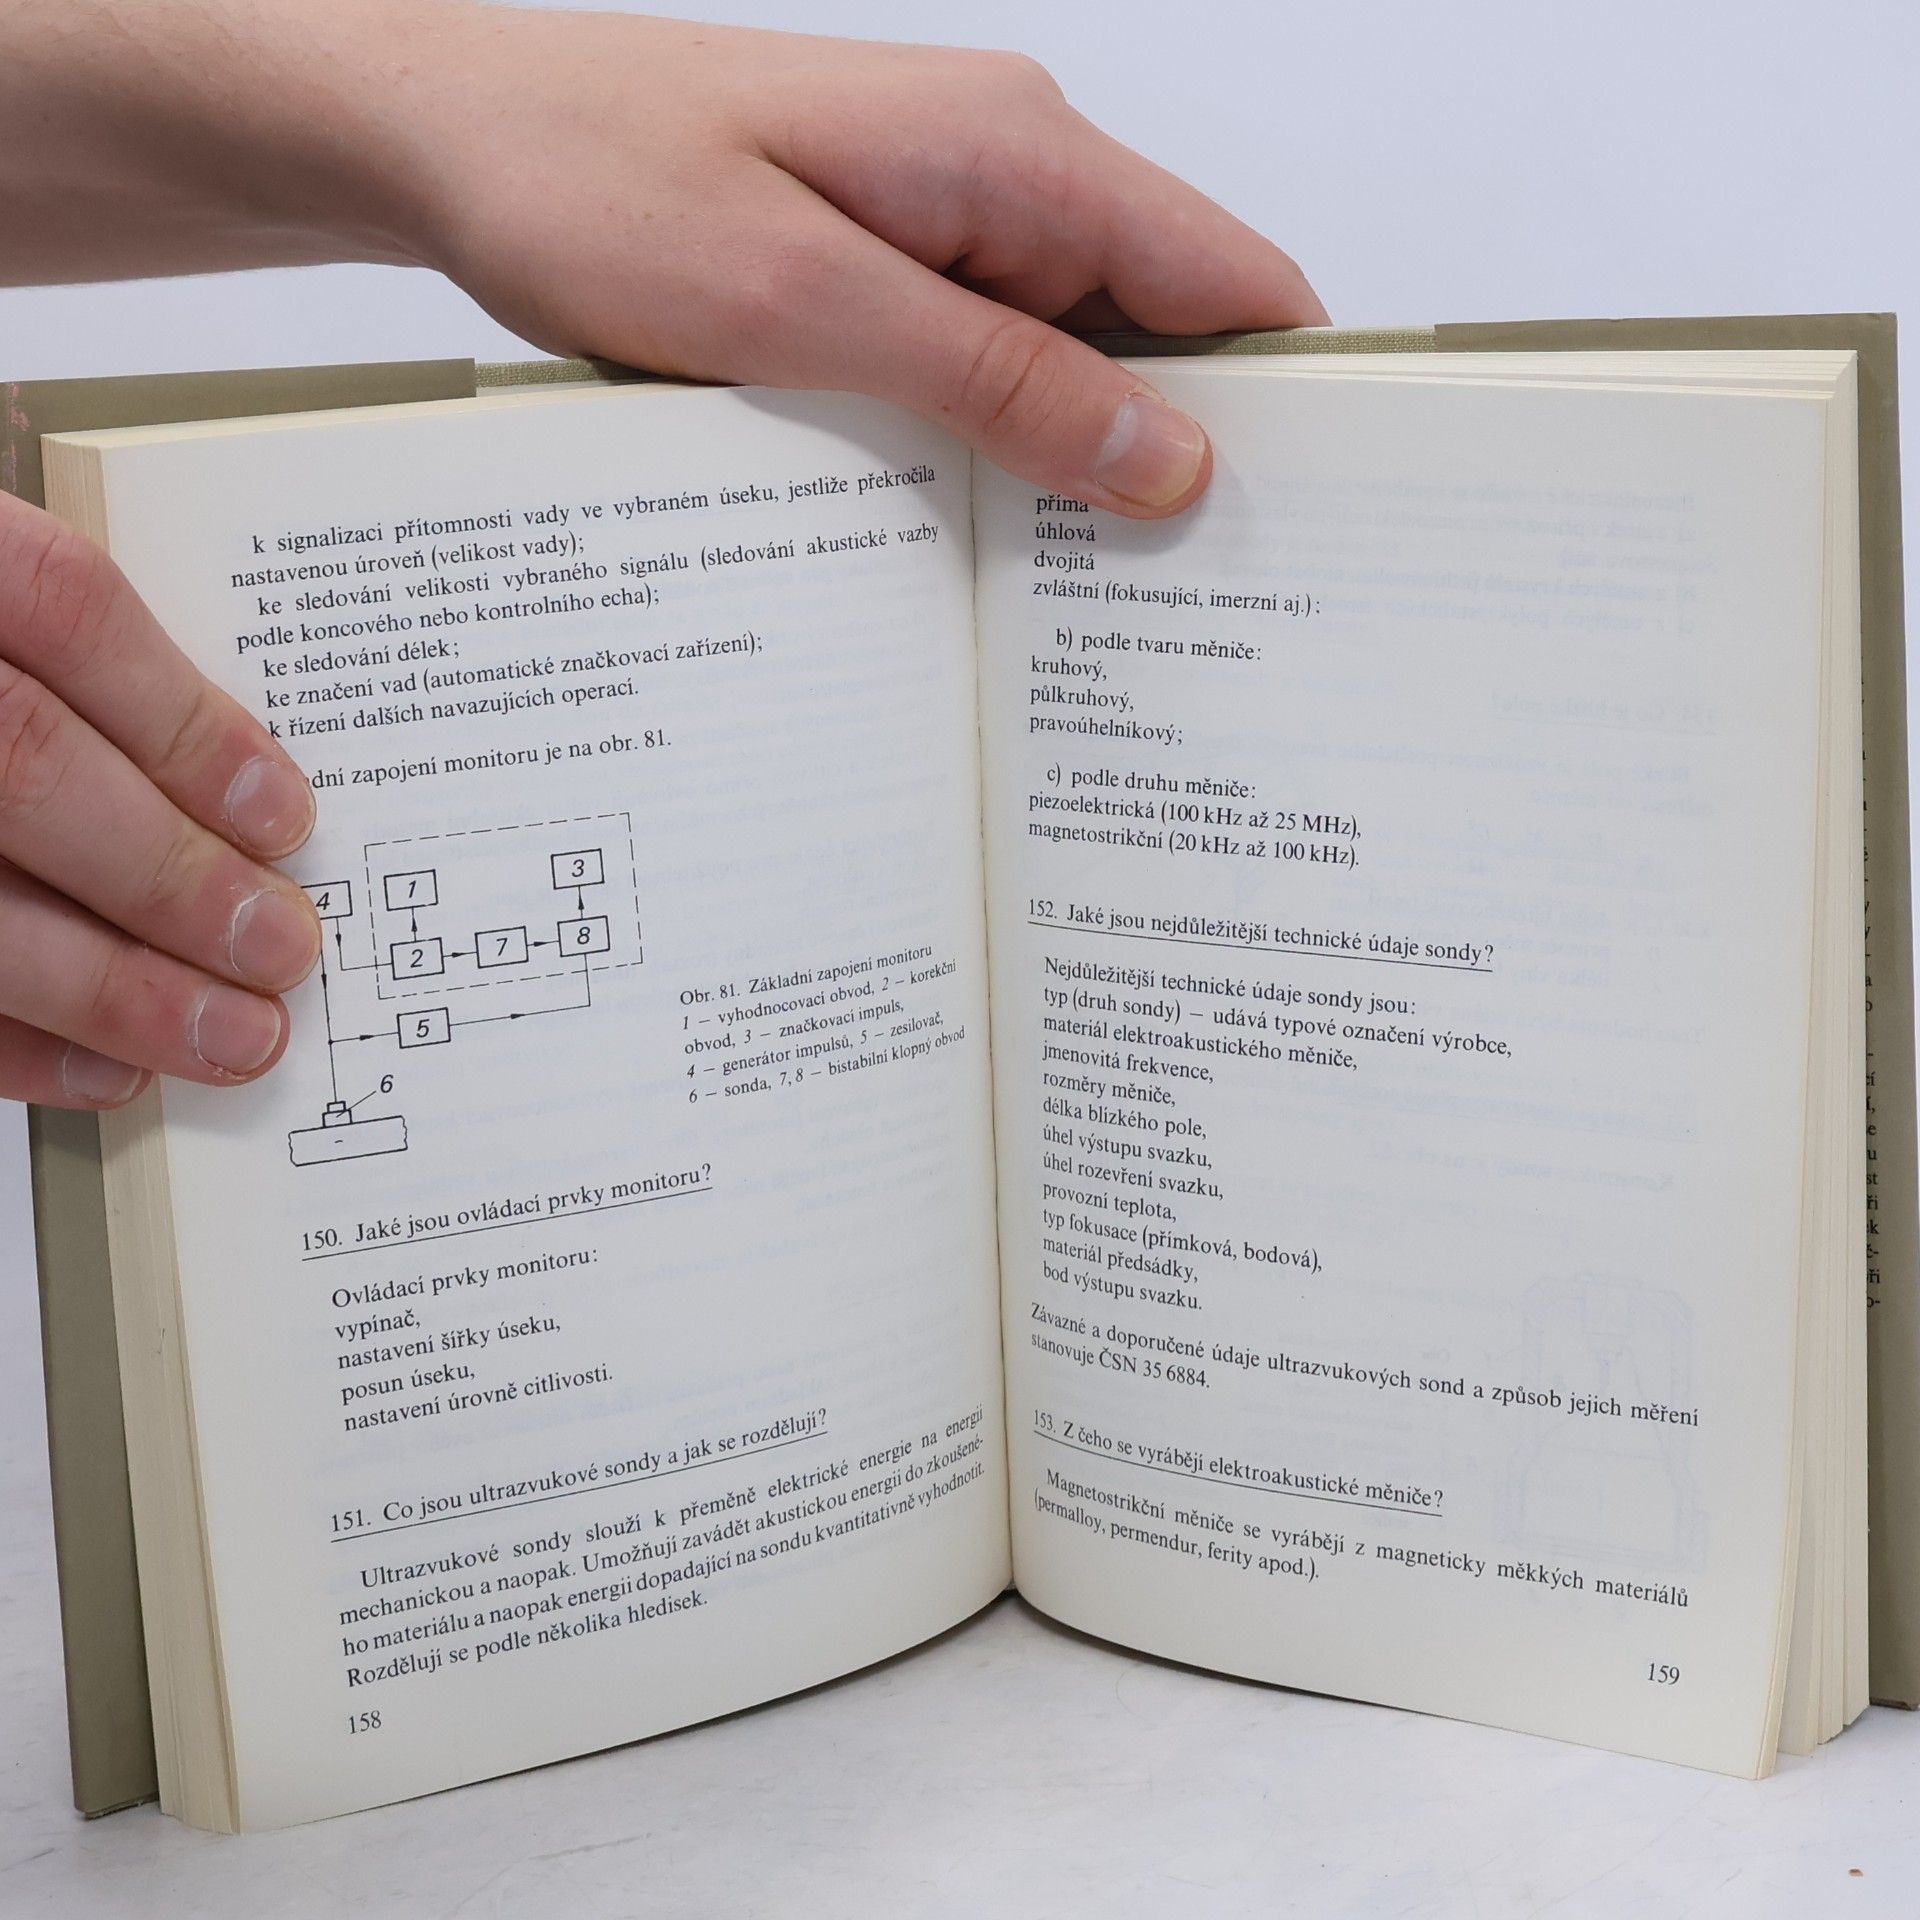 k signalizaci přítomnosti vady ve vybraném úseku, jestliže překročila
nastavenou úroveň (velikost vady);
ke sledování velikosti vybraného signálu (sledování akustické vazby
podle koncového nebo kontrolního echa);
ke sledování délek;
ke značení vad (automatické značkovací zařízení);
k řízení dalších navazujících operací.
dní zapojení monitoru je na obr. 81.
4
1
3
2
7
8
5
6
Obr. 81. Základní zapojení monitoru
1 – vyhodnocovací obvod, 2 – korekční
obvod, 3 – značkovací impuls,
4 – generátor impulsů, 5 – zesilovač,
6 – sonda, 7, 8 – bistabilní klopný obvod
150. Jaké jsou ovládací prvky monitoru?
Ovládací prvky monitoru:
vypínač,
nastavení šířky úseku,
posun úseku,
nastavení úrovně citlivosti.
151. Co jsou ultrazvukové sondy a jak se rozdělují?
Ultrazvukové sondy slouží k přeměně elektrické energie na energii
mechanickou a naopak. Umožňují zavádět akustickou energii do zkoušené-
ho materiálu a naopak energii dopadající na sondu kvantitativně vyhodnotit.
Rozdělují se podle několika hledisek.
158
přímá
úhlová
dvojitá
zvláštní (fokusující, imerzní aj.);
b) podle tvaru měniče:
kruhový,
půlkruhový,
pravoúhelníkový;
c) podle druhu měniče:
piezoelektrická (100 kHz až 25 MHz),
magnetostrikční (20 kHz až 100 kHz).
152. Jaké jsou nejdůležitější technické údaje sondy?
Nejdůležitější technické údaje sondy jsou:
typ (druh sondy) – udává typové označení výrobce,
materiál elektroakustického měniče,
jmenovitá frekvence,
rozměry měniče,
délka blízkého pole,
úhel výstupu svazku,
úhel rozevření svazku,
provozní teplota,
typ fokusace (přímková, bodová),
materiál předsádky,
bod výstupu svazku.
Závazné a doporučené údaje ultrazvukových sond a způsob jejich měření
stanovuje ČSN 35 6884.
153. Z čeho se vyrábějí elektroakustické měniče?
Magnetostrikční měniče se vyrábějí z magneticky měkkých materiálů
(permalloy, permendur, ferity apod.).
159